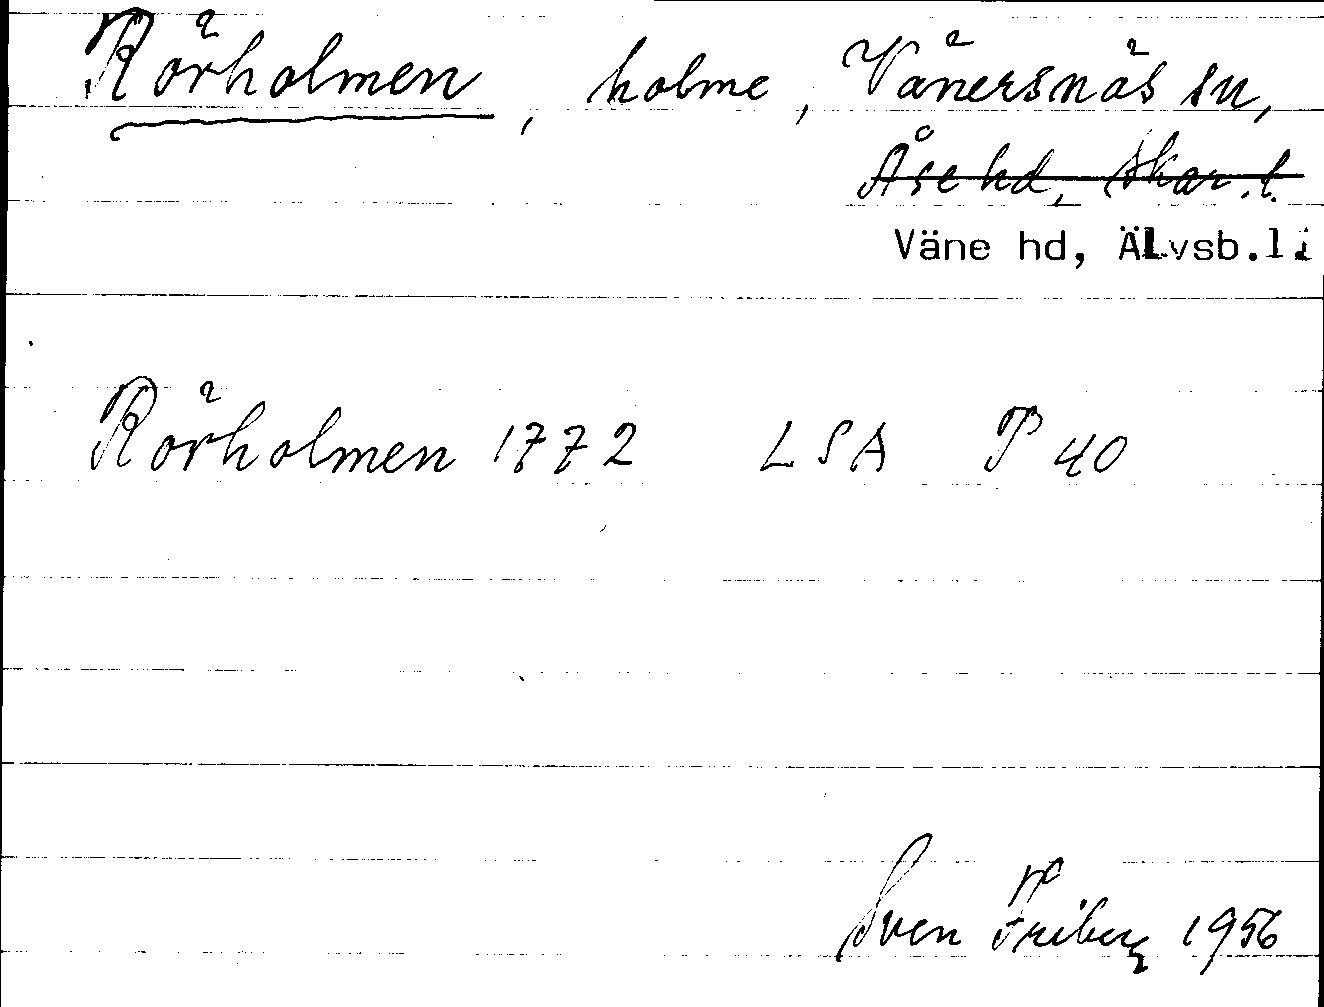 Rörholmen, holme, Vänersnäs sn,
Åse hd, Skar.l.
Väne hd, Älvsb.li
Rörholmen 1772 LSA P 40
Sven Friberg 1956